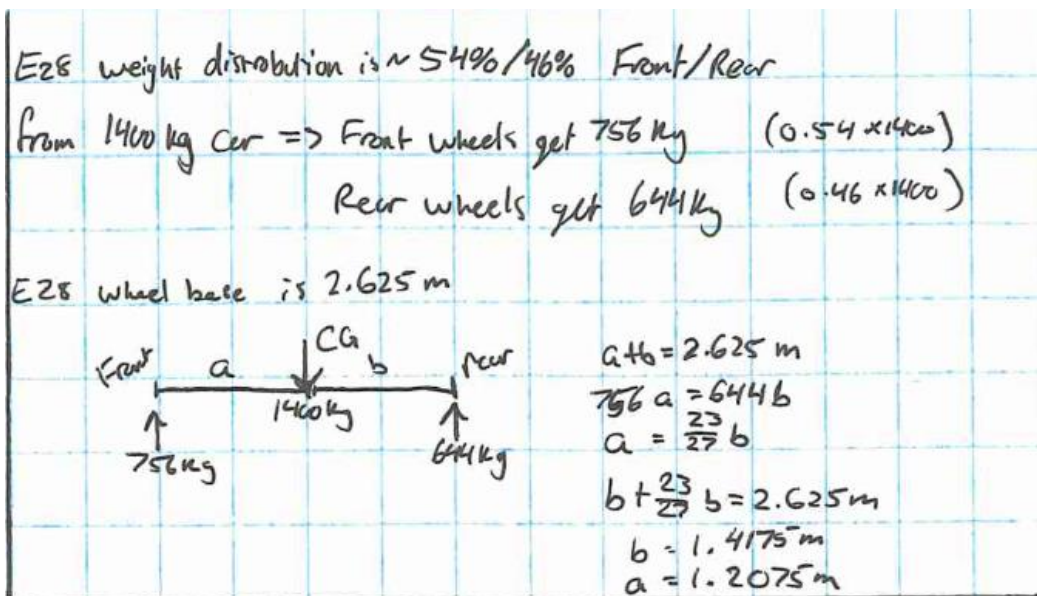 E28 weight distrobution is ~ 54%/46% Front/Rear
from 1400 kg Car => Front wheels get 756 kg (0.54 x1400)
Rear wheels get 644kg (0.46 x1400)
E28 wheel base is 2.625 m
Front a CG b rear
1400kg
756kg 644kg
a+b = 2.625 m
756 a = 644 b
a = 23/27 b
b + 23/27 b = 2.625m
b = 1.4175m
a = 1.2075m